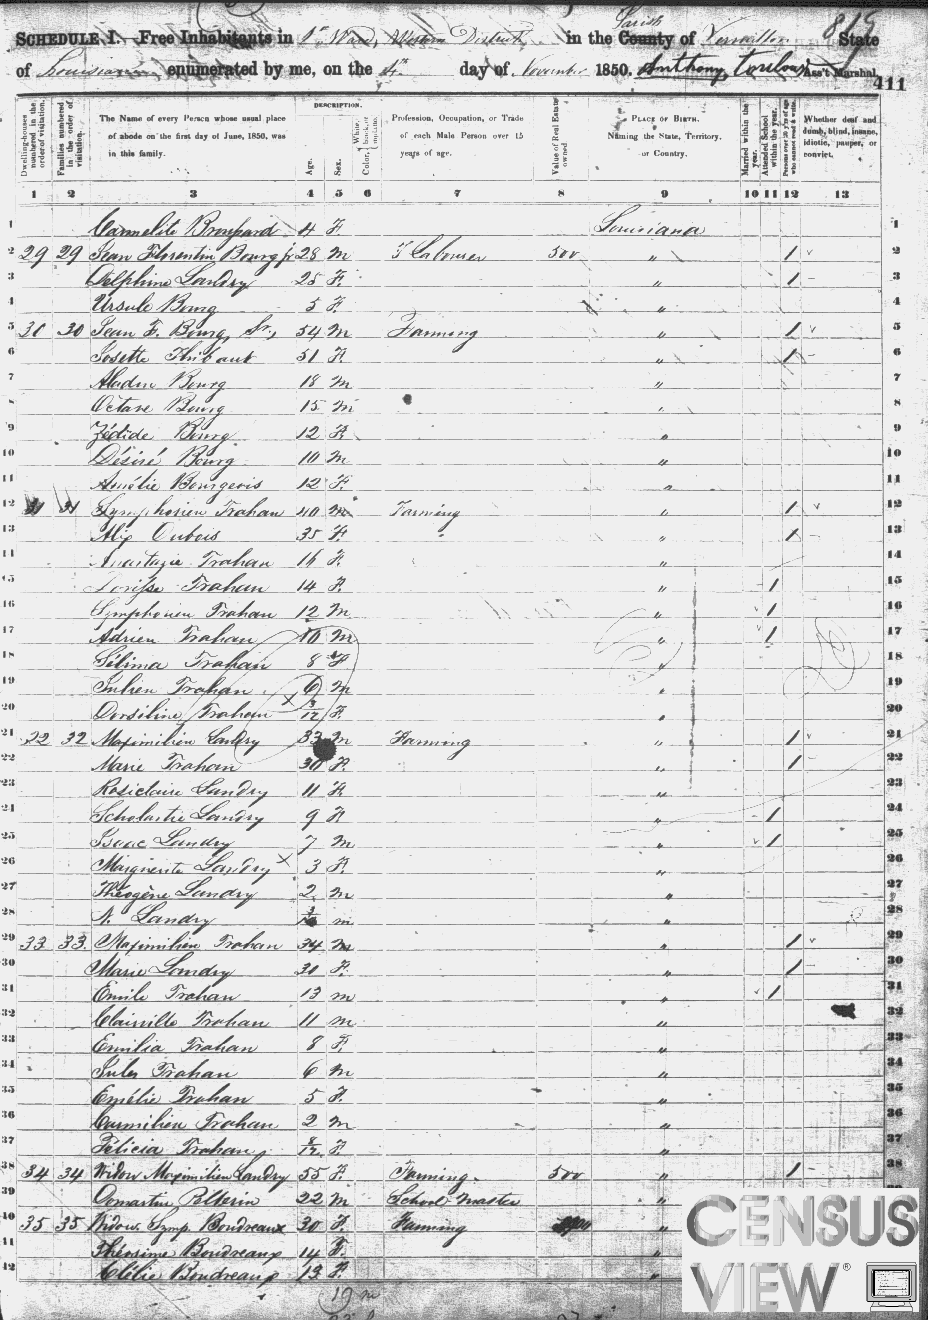 SCHEDULE I.—Free Inhabitants in 1st Ward, Western District, in the County of Parish Vermillion State 819
of Louisiana enumerated by me, on the 4th day of November 1850. Anthony Ass't Marshal. 411
DESCRIPTION.
Dwelling-houses numbered in the order of visitation.
Families numbered in the order of visitation.
The Name of every Person whose usual place of abode on the first day of June, 1850, was in this family.
Age.
Sex.
Color, White, black, or mulatto.
Profession, Occupation, or Trade of each Male Person over 15 years of age.
Value of Real Estate owned
PLACE OF BIRTH. Naming the State, Territory, or Country.
Married within the year.
Attended School within the year.
Persons over 20 y'rs of age who cannot read & write.
Whether deaf and dumb, blind, insane, idiotic, pauper, or convict.
1 2 3 4 5 6 7 8 9 10 11 12 13
1 Carmelite Broussard 4 F. Louisiana 1
2 29 29 Jean Florentin Bourg jr 28 m Labourer 500 " 1 2
3 Delphine Landry 25 F. " 1 3
4 Ursule Bourg 5 F. " 4
5 30 30 Jean F. Bourg, Sr., 54 M Farming " 1 5
6 Josette Thibaut 51 F. " 1 6
7 Aladin Bourg 18 m " 7
8 Octave Bourg 15 m " 8
9 Zédide Bourg 12 F. " 9
10 Désiré Bourg 10 m " 10
11 Amélie Bourgeois 12 F. " 11
12 31 31 Symphorien Trahan 40 m Farming " 1 12
13 Alix Dubois 35 F. " 1 13
14 Anastazie Trahan 16 F. " 14
15 Trahan 14 F. " 1 15
16 Symphorien Trahan 12 m " 1 16
17 Adrien Trahan 10 m " 1 17
18 Sélima Trahan 8 F " 18
19 Julien Trahan 6 m " 19
20 Dorsiline Trahan 3/12 F. " 20
21 32 32 Maximilien Landry 33 m Farming " 1 21
22 Marie Trahan 30 F. " 1 22
23 Rosiclaire Landry 11 F. " 23
24 Scholastie Landry 9 F. " 1 24
25 Isaac Landry 7 m " 1 25
26 Marguerite Landry 3 F. " 26
27 Théogène Landry 2 m " 27
28 N. Landry m " 28
29 33 33 Maximilien Trahan 34 m " 1 29
30 Marie Landry 30 F. " 1 30
31 Emile Trahan 13 m " 1 31
32 Clairville Trahan 11 m " 32
33 Emilia Trahan 8 F. " 33
34 Jules Trahan 6 m " 34
35 Emélie Trahan 5 F. " 35
36 Carmilien Trahan 2 m " 36
37 Félicia Trahan 8/12 F. " 37
38 34 34 Widow Maximilien Landry 55 F. Farming 500 " 1 38
39 Domartin Pellerin 22 m School master "
40 35 35 Widow Symp. Boudreaux 30 F. Farming "
41 Théosime Boudreaux 14 F. "
42 Clélie Boudreaux 13 F. "
19 m
CENSUS
VIEW®